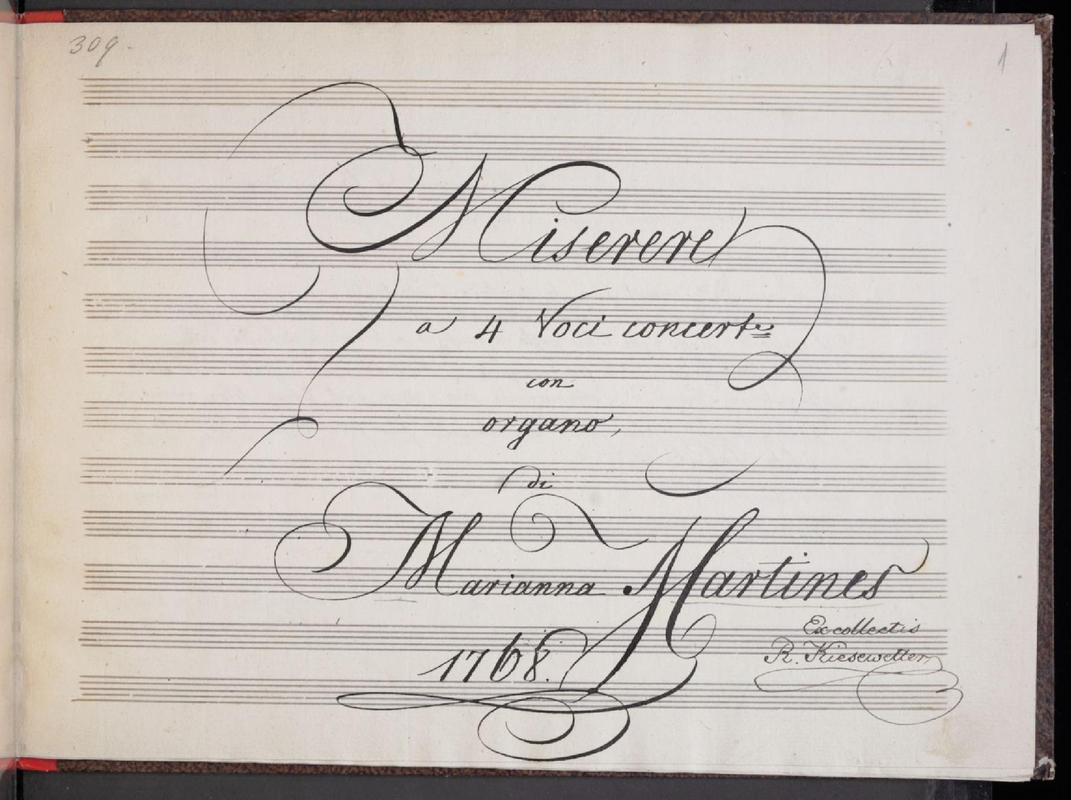 309.
1
Miserere
a 4 Voci concerte
con
organo,
di
Marianna Martines
1768.
Ex collectis
R. Kiesewetter